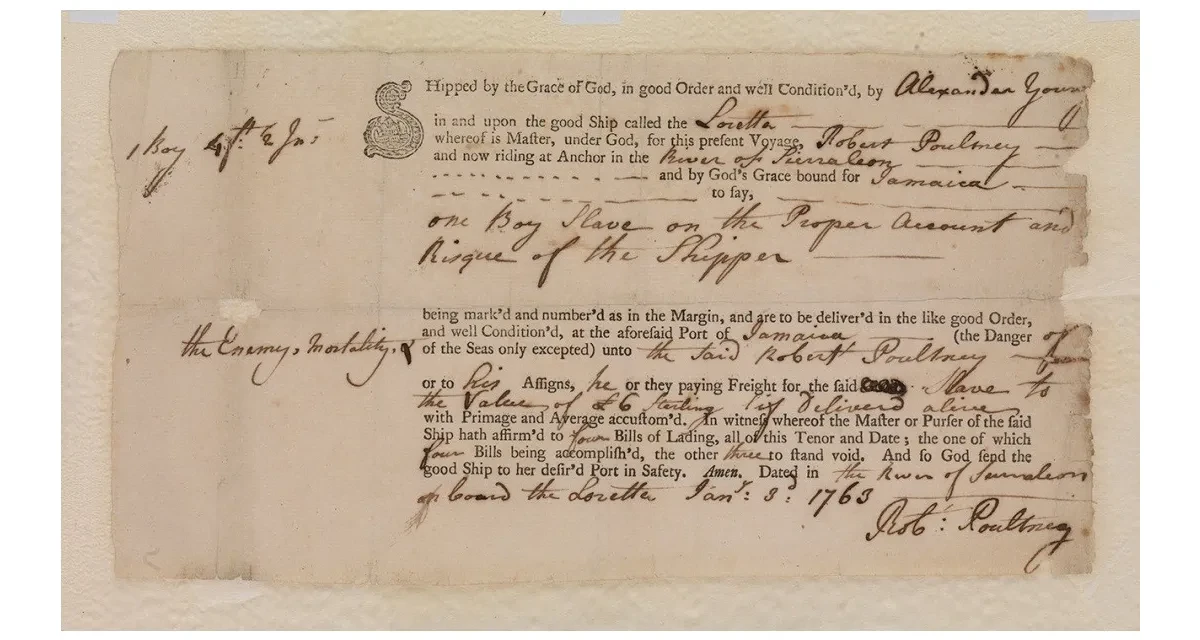 Shipped by the Grace of God, in good Order and well Condition'd, by Alexander Young
in and upon the good Ship called the Loretta
whereof is Master, under God, for this present Voyage, Robert Poultney
and now riding at Anchor in the River of Sierraleon
and by God's Grace bound for Jamaica
to say,
1 Boy 4 ft. 2 Ins
one Boy Slave on the Proper Account and
Risque of the Shipper
being mark'd and number'd as in the Margin, and are to be deliver'd in the like good Order,
and well Condition'd, at the aforesaid Port of Jamaica (the Danger of
the Enemy, Mortality, &
of the Seas only excepted) unto the said Robert Poultney
or to his Assigns, he or they paying Freight for the said Slave to
the Value of £6 Sterling if Deliverd alive
with Primage and Average accustom'd. In witness whereof the Master or Purser of the said
Ship hath affirm'd to four Bills of Lading, all of this Tenor and Date; the one of which
four Bills being accomplish'd, the other three to stand void. And so God send the
good Ship to her desir'd Port in Safety. Amen. Dated in the River of Sierraleon
on board the Loretta Jany: 3d: 1763
Robt: Poultney